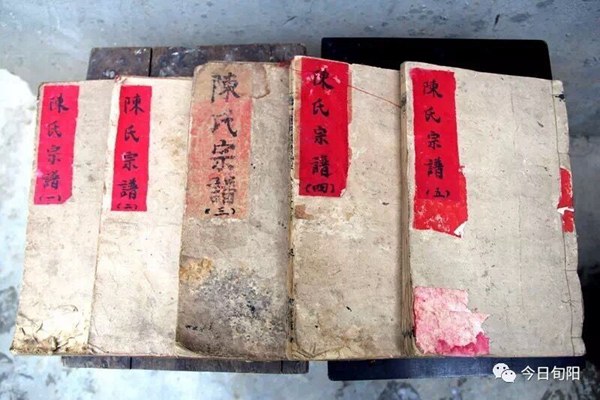 陳氏宗譜(一)
陳氏宗譜(二)
陳氏宗譜(三)
陳氏宗譜(四)
陳氏宗譜(五)
今日旬阳